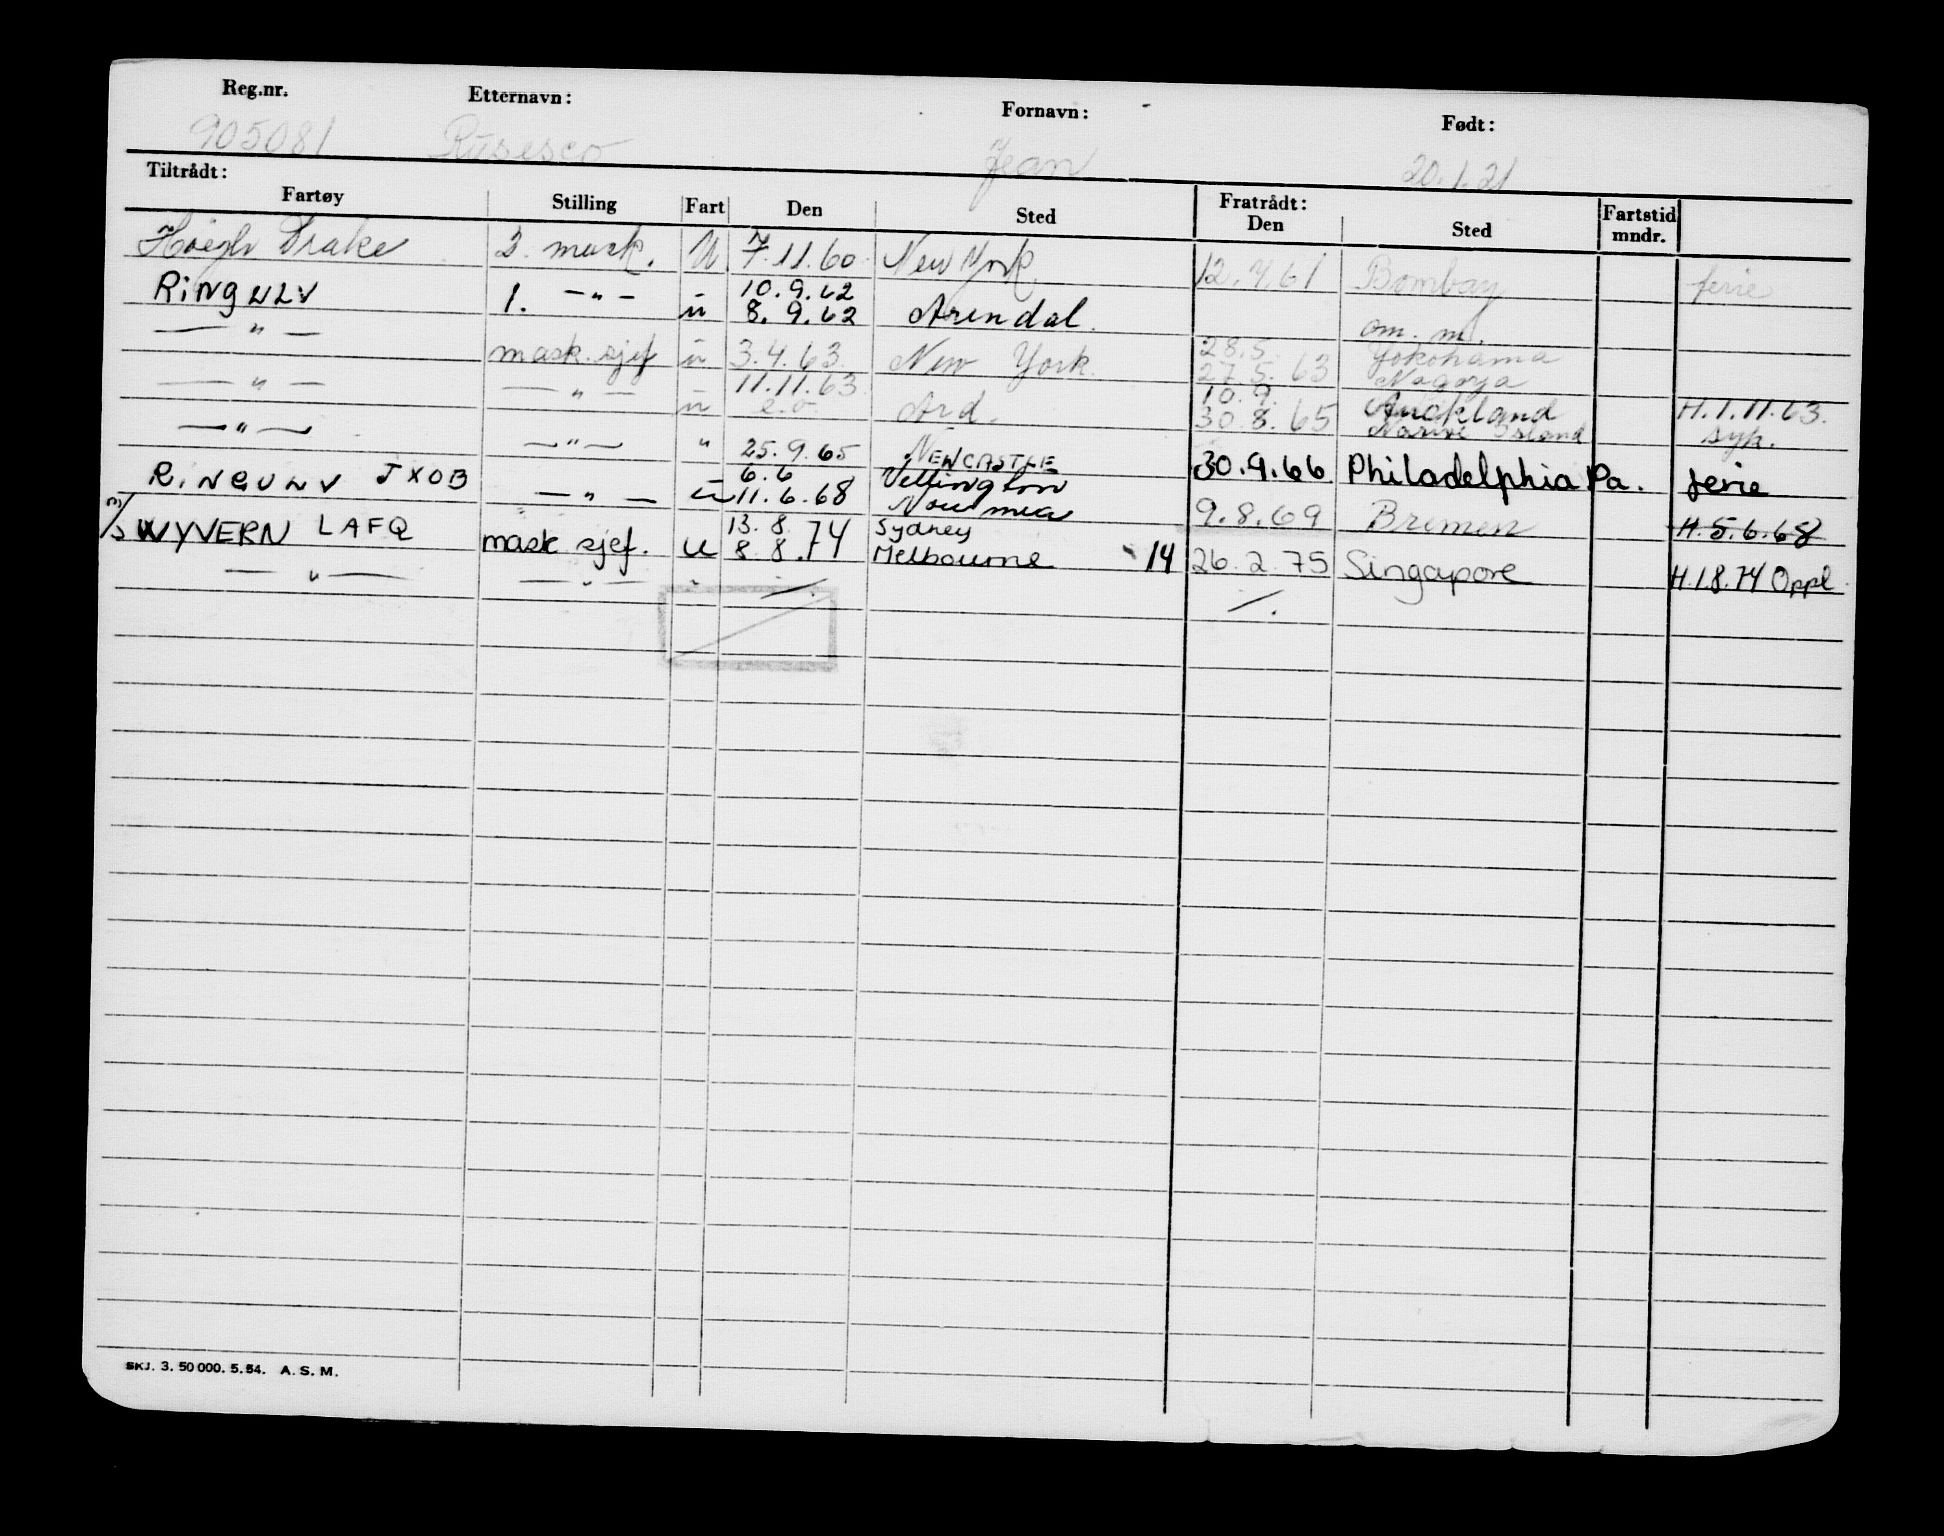 Reg.nr. Etternavn: Fornavn: Født:
905081 Rusesco Jean 20.1.21
Tiltrådt: Fratrådt:
Fartøy Stilling Fart Den Sted Den Sted Fartstid mndr.
Höegh Drake 2. mask. U 7.11.60 New York 12.4.61 Bombay ferie
10.9.62
RINGULV 1. —"— u 8.9.62 Arendal. om. m.
28.5. Yokohama
—"— mask. sjef u 3.4.63. New York. 27.5.63 Nagoya
11.11.63 10.9. Auckland H.1.11.63.
—"— —"— u e.o. Ard. 30.8.65 Island syk.
—"— —"— " 25.9.65 NEWCASTLE 30.9.66 Philadelphia Pa. ferie
6.6 Wellington
RINGULV JXOB —"— u 11.6.68 Noumea 9.8.69 Bremen H.5.6.68
13.8. Sydney
M/S WYVERN LAFQ mask sjef. u 8.8.74 Melbourne 14 26.2.75 Singapore H.1.8.74 Oppl.
—"— —"— " —/. —/.
SKJ. 3. 50 000. 5. 54. A. S. M.